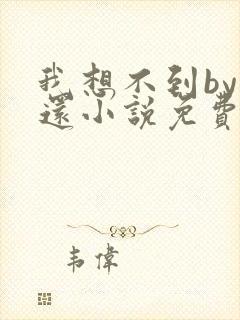 我想不到by
還小說免費
韦偉